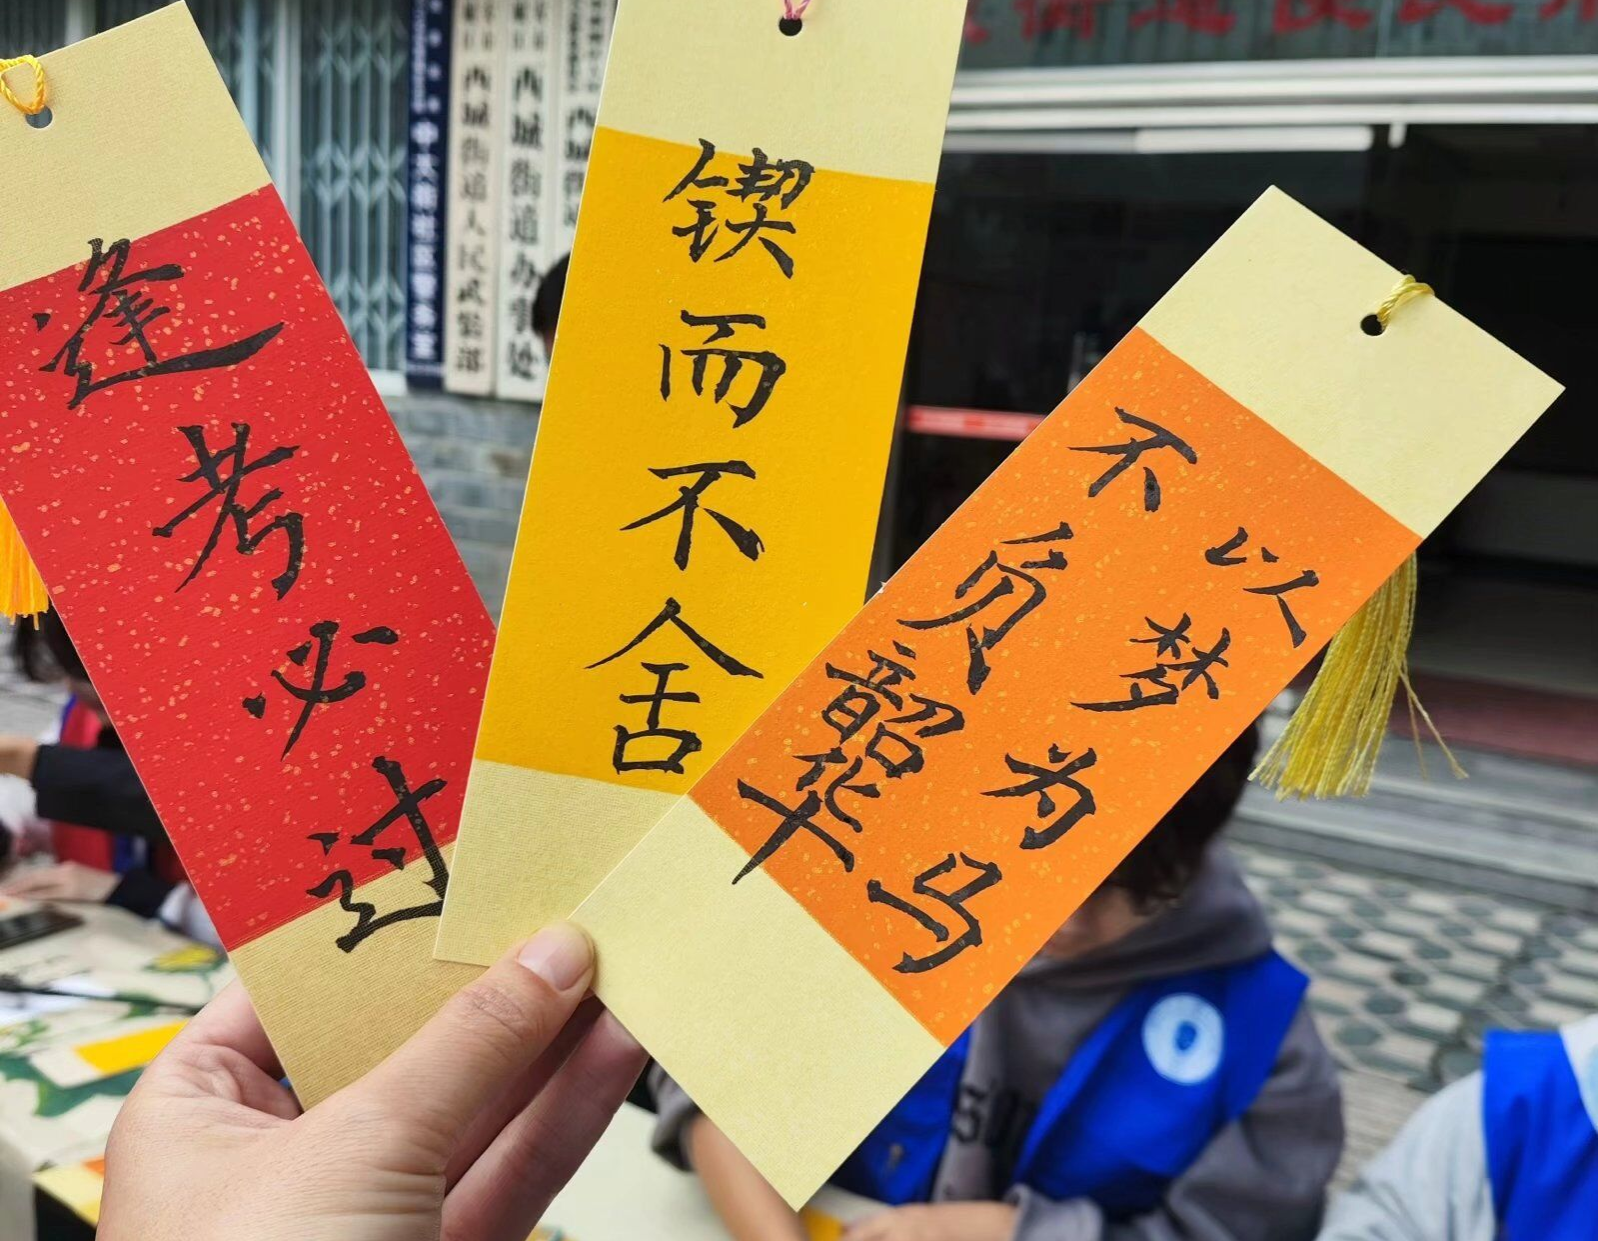 逢考必过
锲而不舍
以梦为马
不负韶华
西城街道人民武装部
西城街道办事处
西城街道